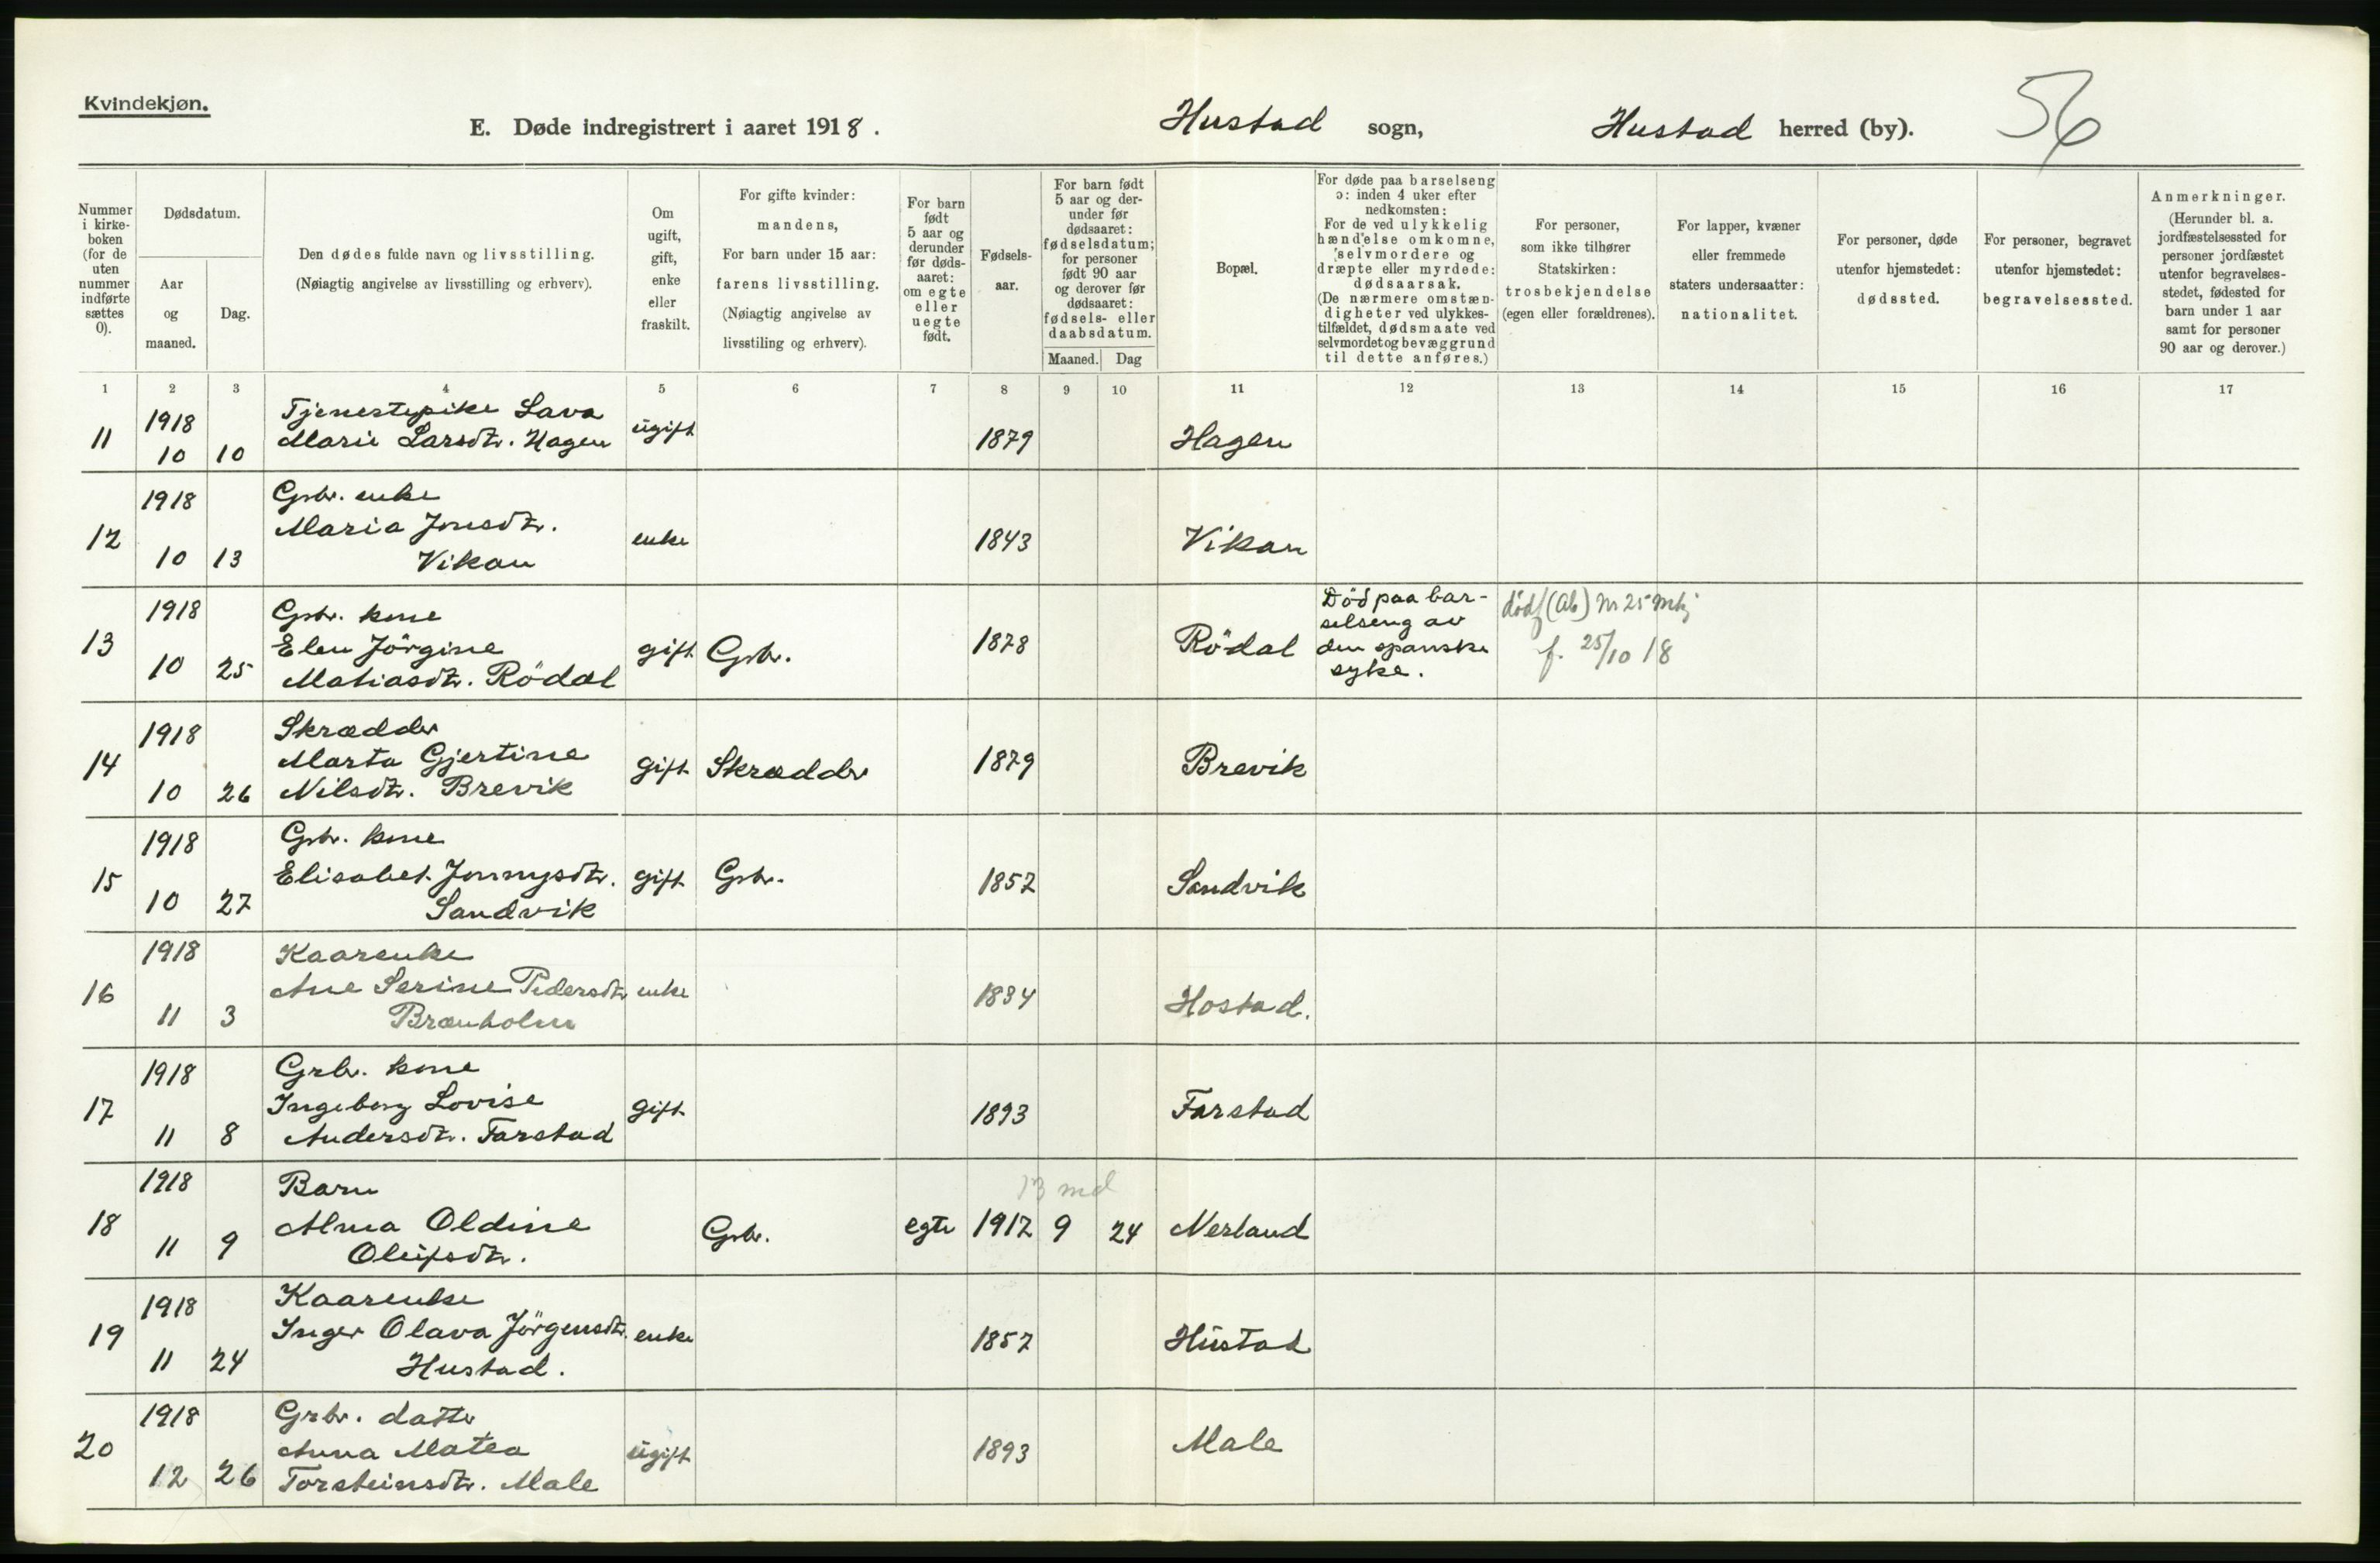 Kvindekjøn.
E. Døde indregistrert i aaret 1918.
Hustad sogn,
Hustad herred (by).
56
Nummer i kirke-boken (for de uten nummer indførte sættes 0).
Dødsdatum.
Aar og maaned.
Dag.
Den dødes fulde navn og livsstilling.
(Nøiagtig angivelse av livsstilling og erhverv).
Om ugift, gift, enke eller fraskilt.
For gifte kvinder: mandens,
For barn under 15 aar: farens livsstilling.
(Nøiagtig angivelse av livsstiling og erhverv).
For barn født 5 aar og derunder før døds-aaret: om egte eller uegte født.
Fødsels-aar.
For barn født 5 aar og der-under før dødsaaret: fødselsdatum; for personer født 90 aar og derover før dødsaaret: fødsels- eller daabsdatum.
Maaned.
Dag
Bopæl.
For døde paa barselseng ɔ: inden 4 uker efter nedkomsten:
For de ved ulykkelig hændelse omkomne, selvmordere og dræpte eller myrdede: dødsaarsak.
(De nærmere omstæn-digheter ved ulykkes-tilfældet, dødsmaate ved selvmordet og bevæggrund til dette anføres.)
For personer, som ikke tilhører Statskirken: trosbekjendelse (egen eller forældrenes).
For lapper, kvæner eller fremmede staters undersaatter: nationalitet.
For personer, døde utenfor hjemstedet: dødssted.
For personer, begravet utenfor hjemstedet: begravelsessted.
Anmerkninger.
(Herunder bl. a. jordfæstelsessted for personer jordfæstet utenfor begravelses-stedet, fødested for barn under 1 aar samt for personer 90 aar og derover.)
1 2 3 4 5 6 7 8 9 10 11 12 13 14 15 16 17
11
1918
10 10
Tjenestepike Lava
Marie Larsdtr. Hagen
ugift
1879
Hagen
12
1918
10 13
Gbr. enke
Maria Jonsdtr.
Vikan
enke
1843
Vikan
13
1918
10 25
Gbr. kone
Elen Jörgine
Matiasdtr. Rödal
gift
Gbr.
1878
Rödal
Död paa bar-
selseng av
den spanske
syke.
dödf (Ab) nr 25 mkj
f. 25/10 18
14
1918
10 26
Skrædder
Marta Gjertine
Nilsdtr. Brevik
gift
Skrædder
1879
Brevik
15
1918
10 27
Gbr. kone
Elisabet
Sandvik
gift
Gbr.
1857
Sandvik
16
1918
11 3
Kaarenke
Ane Serine Pedersdtr
enke
1834
Hostad.
17
1918
11 8
Grbr. kone
Ingeborg Lovise
Andersdtr. Farstad
gift
1893
Farstad
18
1918
11 9
Barn
Alma Oldine
Oleifsdtr.
Gbr.
egte
13 md
1917 9 24
Nerland
19
1918
11 24
Kaarenke
Inger Olava Jörgensdtr.
Hustad.
enke
1857
Hustad
20
1918
12 26
Grbr. datter
Anna Matea
Torsteinsdtr. Male
ugift
1893
Male